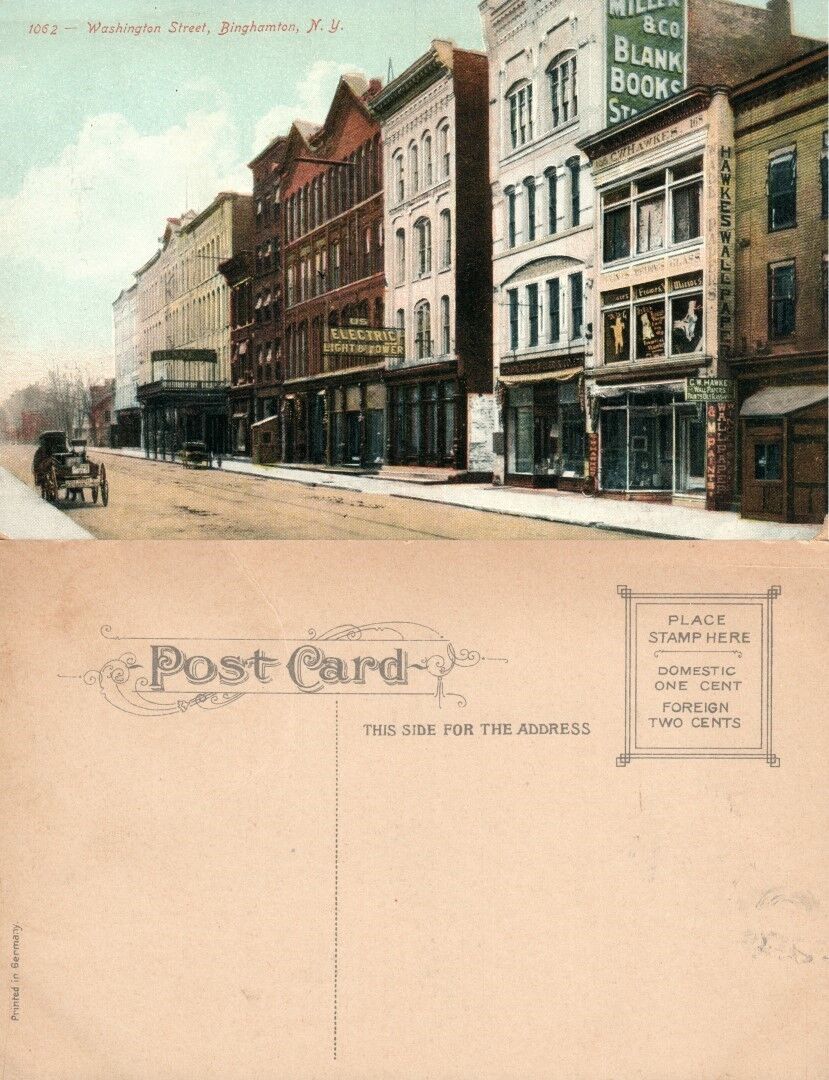 1062 — Washington Street, Binghamton, N. Y.
MILLER
& CO
BLANK
BOOKS
C.W. HAWKES
HAWKES WALL PAPER
US
ELECTRIC
LIGHT & POWER
C. W. HAWKE
WALL PAPERS
WALL PAPER
PAINTS
Post Card
THIS SIDE FOR THE ADDRESS
PLACE
STAMP HERE
DOMESTIC
ONE CENT
FOREIGN
TWO CENTS
Printed in Germany.